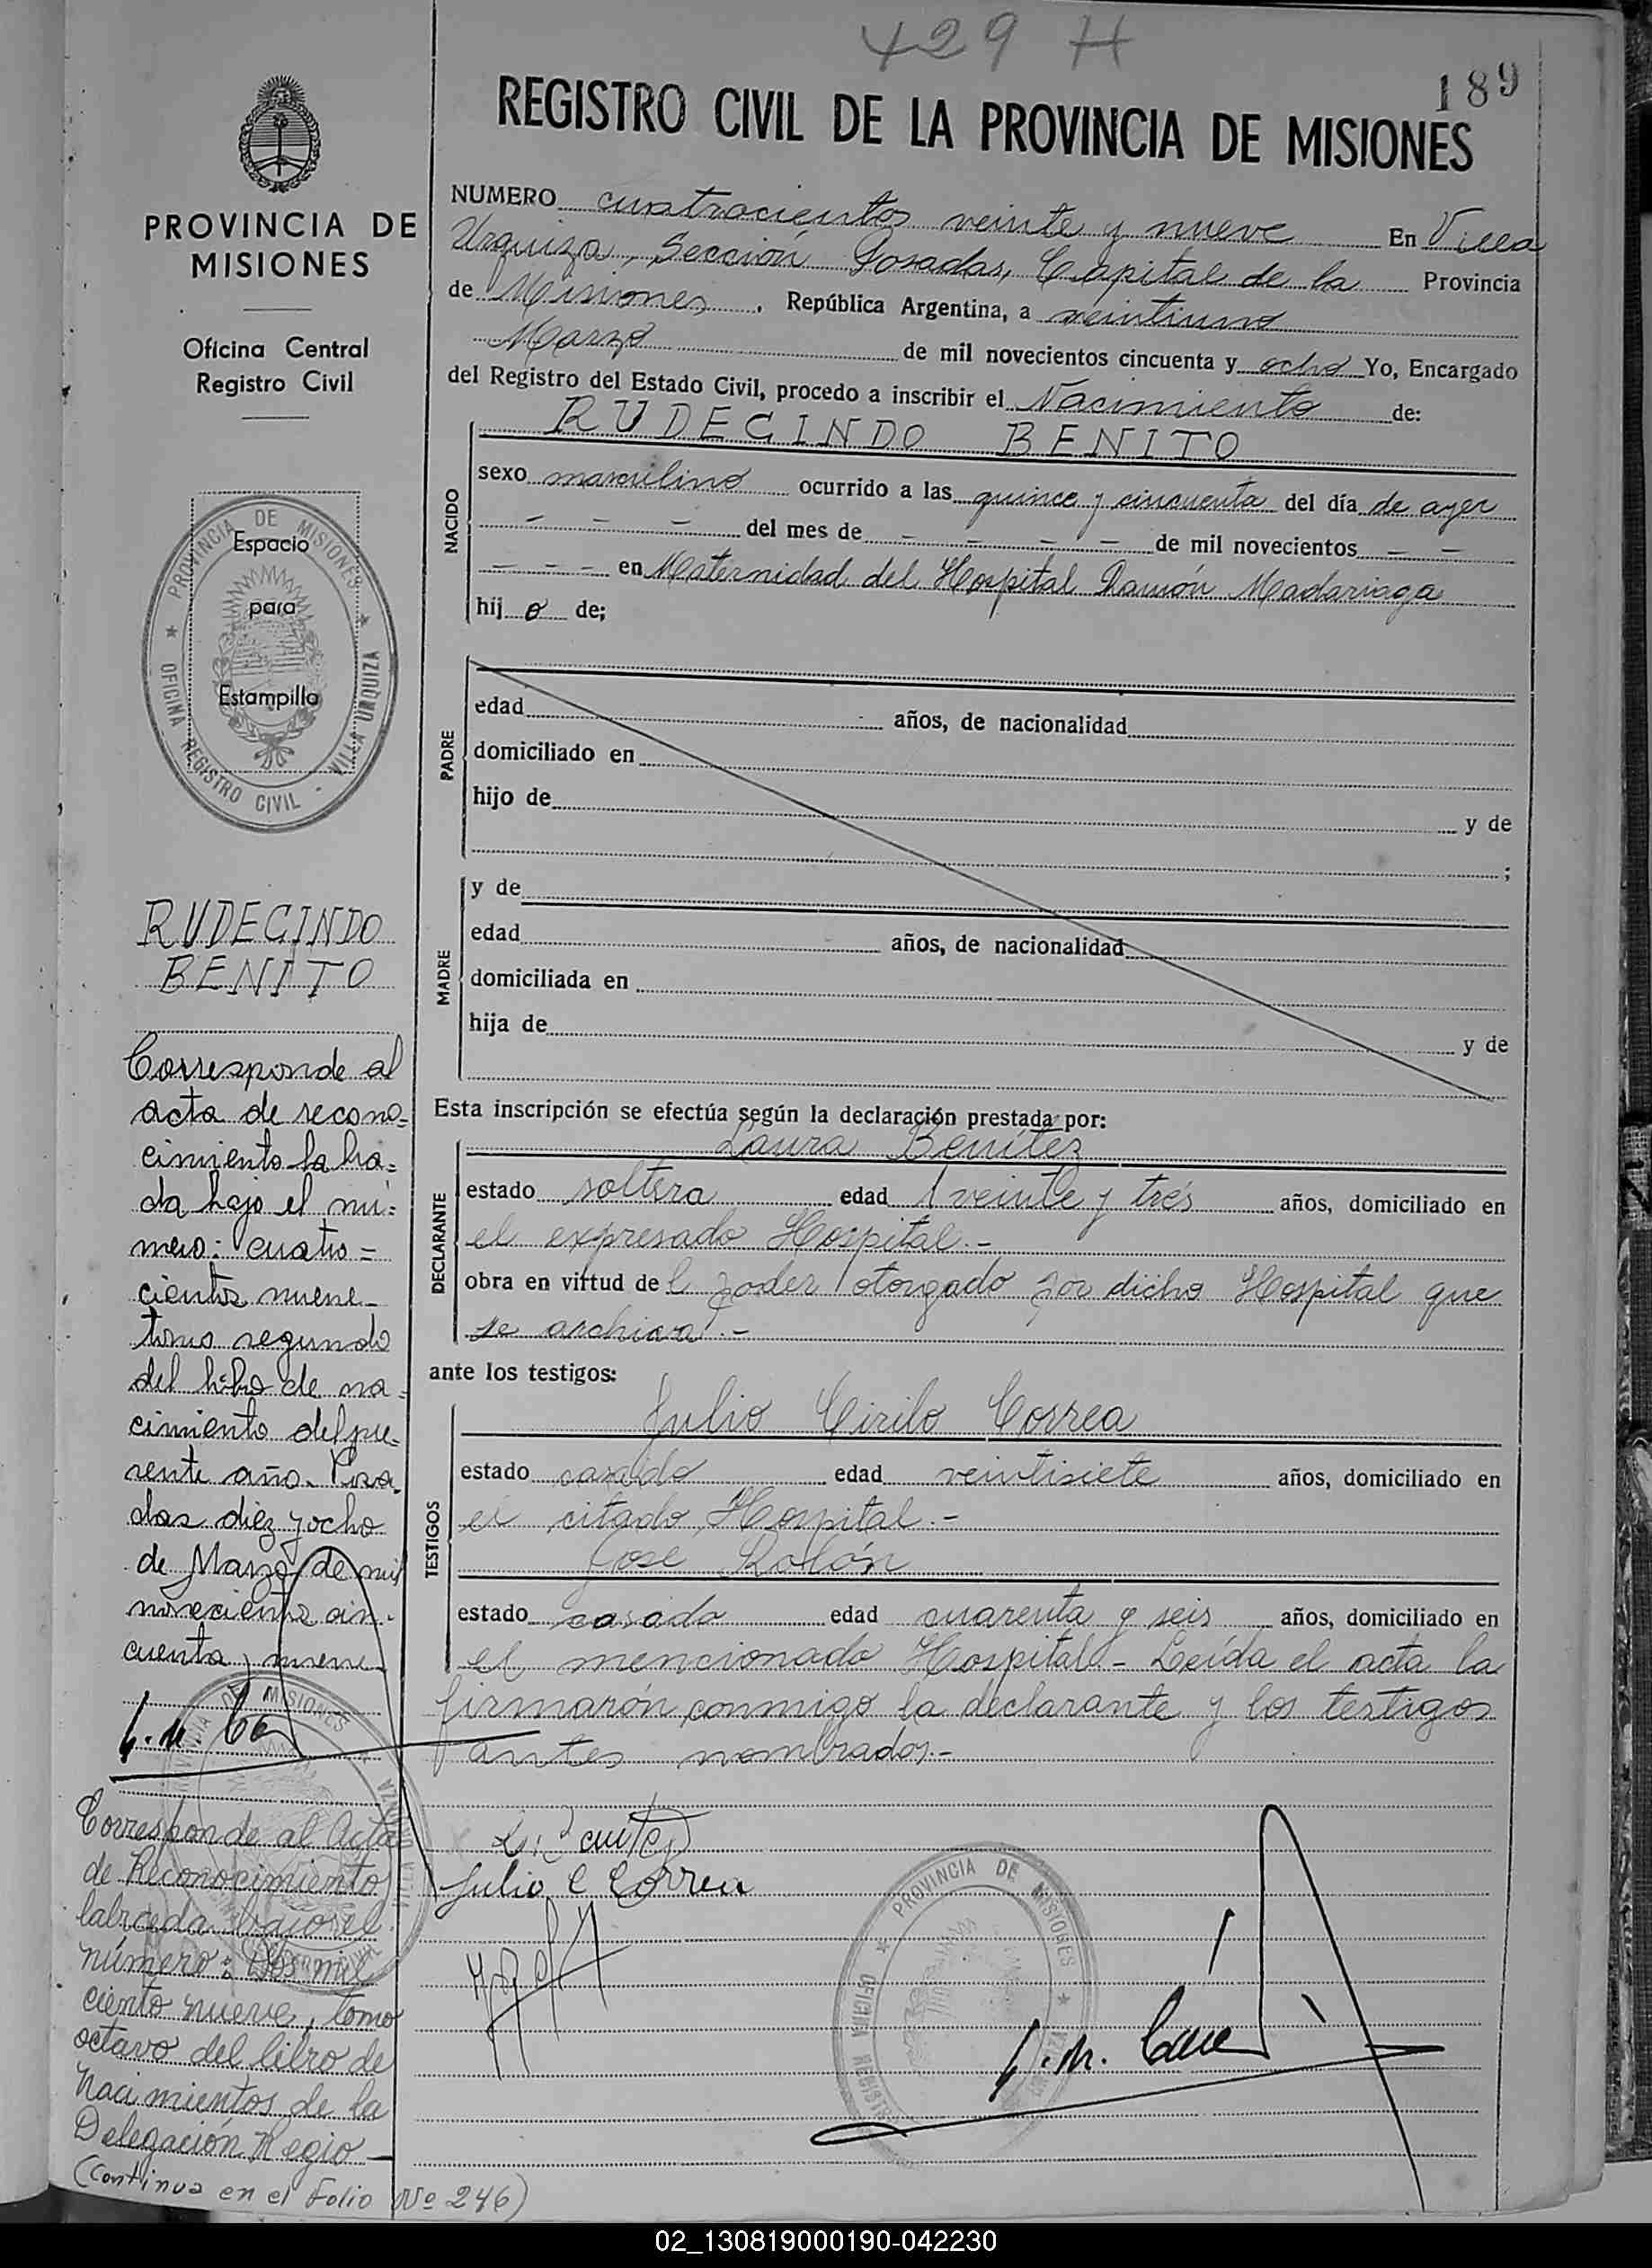 429 H
189
REGISTRO CIVIL DE LA PROVINCIA DE MISIONES
PROVINCIA DE
MISIONES
Oficina Central
Registro Civil
PROVINCIA DE MISIONES
OFICINA REGISTRO CIVIL - VILLA URQUIZA
Espacio
para
Estampilla
RUDECINDO
BENITO
Corresponde al
acta de recono=
cimiento labra=
da bajo el nú=
mero: cuatro=
cientos nueve
tomo segundo
del libro de na=
cimiento del pre=
sente año. Posa
das diez y ocho
de Marzo de mil
novecientos cin-
cuenta y nueve
Corresponde al Acta
de Reconocimiento
labrada bajo el
número: Dos mil
ciento nueve, tomo
octavo del libro de
Nacimientos de la
Delegación Regio-
(Continua en el Folio Nº 246)
NUMERO cuatrocientos veinte y nueve En Villa
Urquiza, Sección Posadas, Capital de la Provincia
de Misiones, República Argentina, a veintiuno
Marzo de mil novecientos cincuenta y ocho Yo, Encargado
del Registro del Estado Civil, procedo a inscribir el Nacimiento de:
RUDECINDO BENITO
NACIDO
sexo masculino ocurrido a las quince y cincuenta del día de ayer
- - - del mes de - - - - de mil novecientos - -
- - - en Maternidad del Hospital Ramón Madariaga
hij o de;
PADRE
edad años, de nacionalidad
domiciliado en
hijo de y de
;
MADRE
y de
edad años, de nacionalidad
domiciliada en
hija de y de
Esta inscripción se efectúa según la declaración prestada por:
Laura Benítez
DECLARANTE
estado soltera edad veinte y trés años, domiciliado en
el expresado Hospital.-
obra en virtud de l poder otorgado por dicho Hospital que
se archiva.-
ante los testigos:
Julio Cirilo Correa
TESTIGOS
estado casado edad veintisiete años, domiciliado en
el citado Hospital.-
José Rolón
estado casado edad cuarenta y seis años, domiciliado en
el mencionado Hospital.- Leída el acta la
firmarón conmigo la declarante y los testigos
antes nombrados.-
L. Benitez
Julio C Correa
PROVINCIA DE MISIONES
02_130819000190-042230